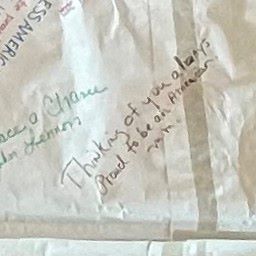 ESS AMERIC
ace a Chance
Lennon
Thinking of you always
Proud to be an American